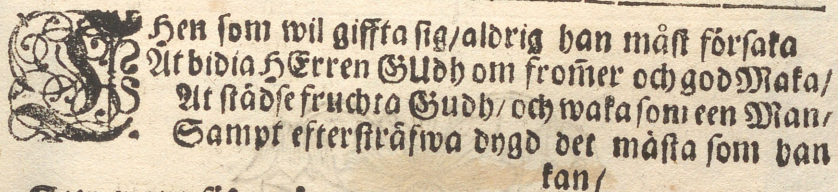 THen som wil giffta sig/aldrig han måst försaka
At bidia HErren GUdh om from̃er och god Maka/
At städse fruchta Gudh/och waka som een Man/
Sampt eftersträfwa dygd det måsta som han
kan/